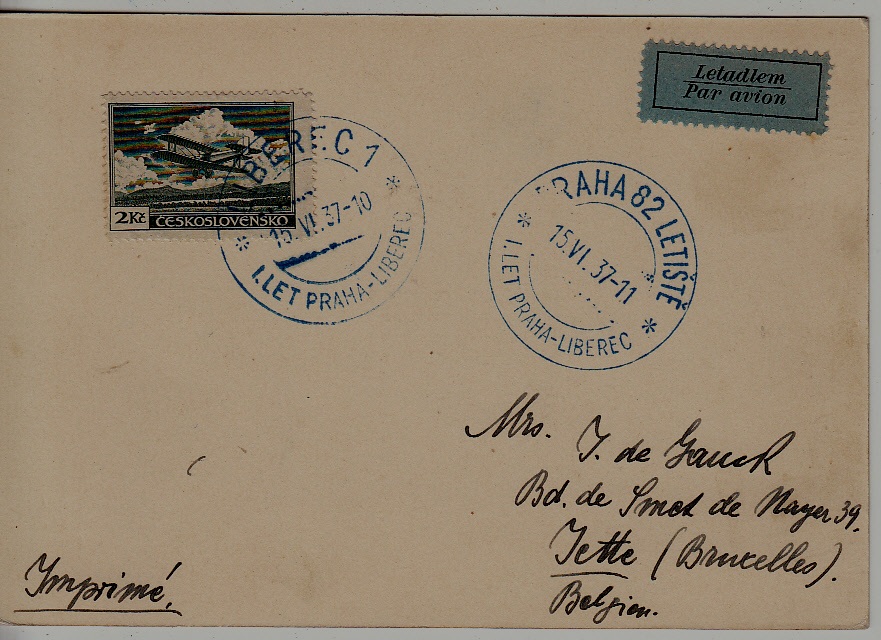 Letadlem
Par avion
2Kč ČESKOSLOVENSKO
BEREC 1
15.VI.37-10
I.LET PRAHA-LIBEREC
PRAHA 82 LETIŠTĚ
15.VI.37-11
I.LET PRAHA-LIBEREC
Mrs. J. de Ganck
Bd. de Smet de Nayer 39.
Jette (Bruxelles).
Belgien.
Imprimé.